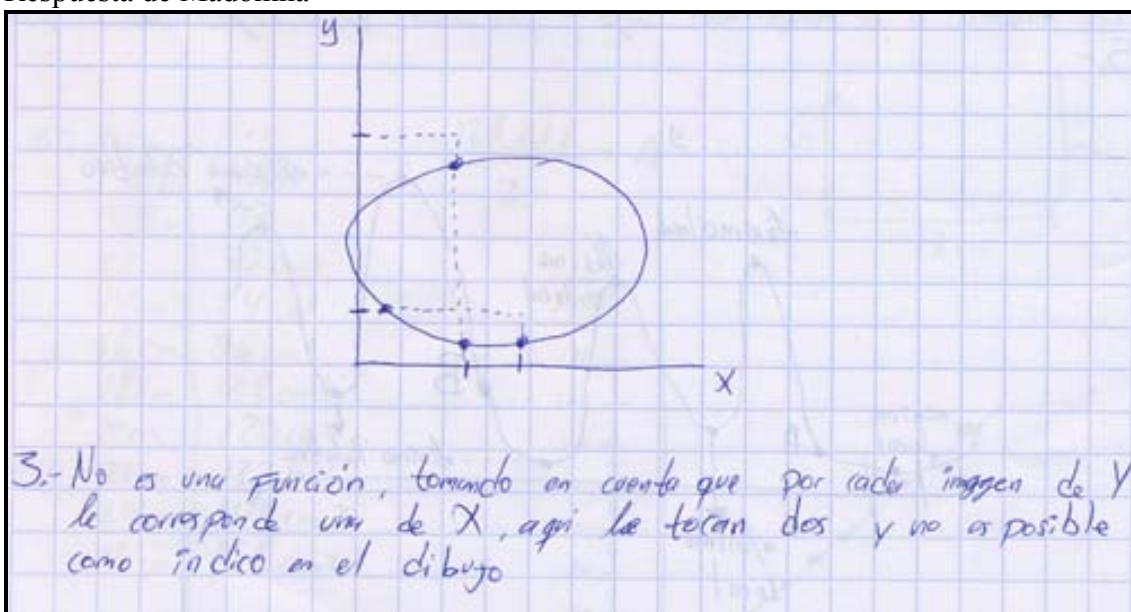 Respuesta de Madonna
y
X
3.- No es una Función, tomando en cuenta que por cada imagen de Y
le corresponde una de X, aqui le tocan dos y no es posible
como indico en el dibujo